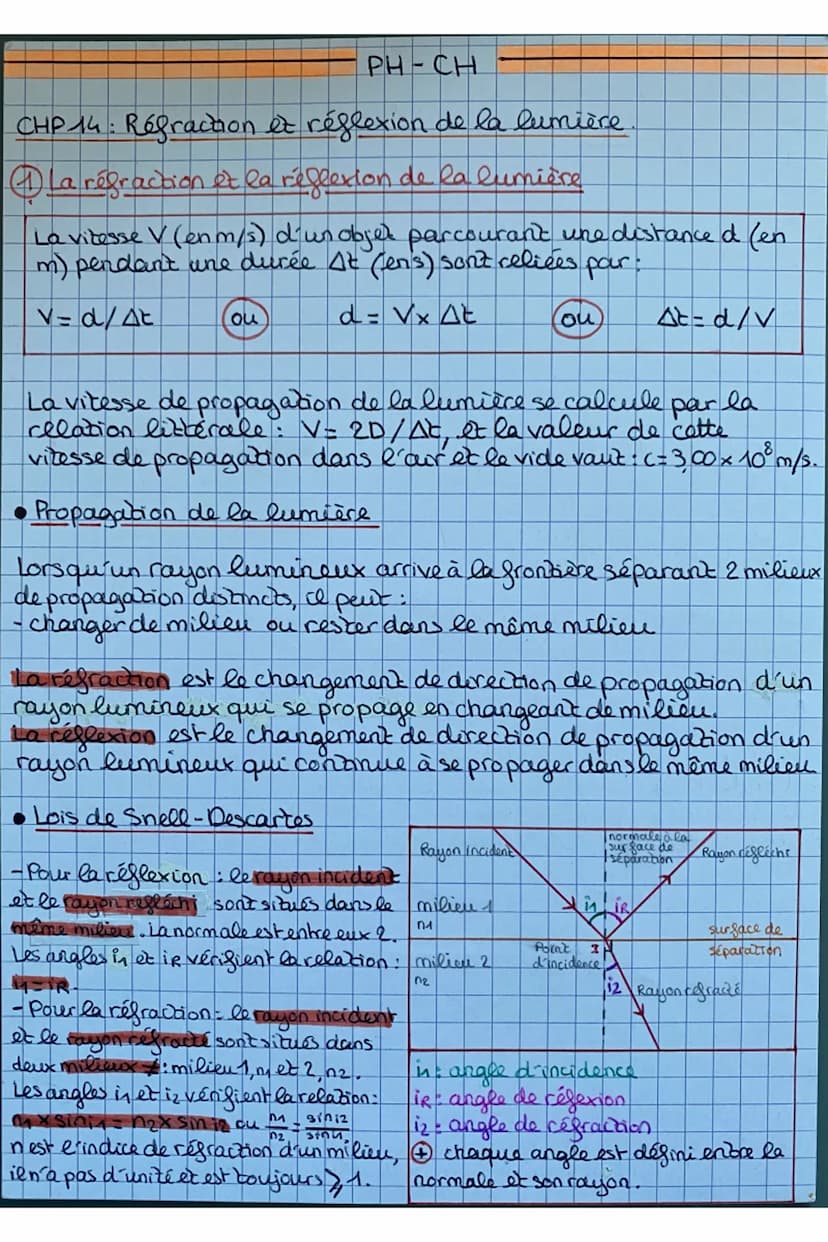 PH - CH
CHP 14 : Réfraction et réflexion de la lumière.
① La réfraction et la réflexion de la lumière
La vitesse V (en m/s) d'un objet parcourant une distance d (en
m) pendant une durée Δt (en s) sont reliées par :
V = d/Δt ou d = V x Δt ou Δt = d/V
La vitesse de propagation de la lumière se calcule par la
relation littérale : V = 2D/Δt, et la valeur de cette
vitesse de propagation dans l'air et le vide vaut : c = 3,00 x 10⁸ m/s.
• Propagation de la lumière
Lorsqu'un rayon lumineux arrive à la frontière séparant 2 milieux
de propagation distincts, il peut :
- changer de milieu ou rester dans le même milieu
La réfraction est le changement de direction de propagation d'un
rayon lumineux qui se propage en changeant de milieu.
La réflexion est le changement de direction de propagation d'un
rayon lumineux qui continue à se propager dans le même milieu
• Lois de Snell-Descartes
- Pour la réflexion : le rayon incident
et le rayon réfléchi sont situés dans le
même milieu. La normale est entre eux 2.
Les angles i1 et iR vérifient la relation :
i1 = iR.
- Pour la réfraction : le rayon incident
et le rayon réfracté sont situés dans
deux milieux ≠ : milieu 1, n1 et 2, n2.
Les angles i1 et i2 vérifient la relation :
n1 x sin i1 = n2 x sin i2 ou n1/n2 = sin i2/sin i1.
n est l'indice de réfraction d'un milieu,
il n'a pas d'unité et est toujours ⩾ 1.
Rayon incident
normale à la
surface de
séparation
Rayon réfléchi
milieu 1
n1
i1
iR
surface de
séparation
Point I
d'incidence
milieu 2
n2
i2
Rayon réfracté
i1 : angle d'incidence
iR : angle de réflexion
i2 : angle de réfraction
⊕ chaque angle est défini entre la
normale et son rayon.